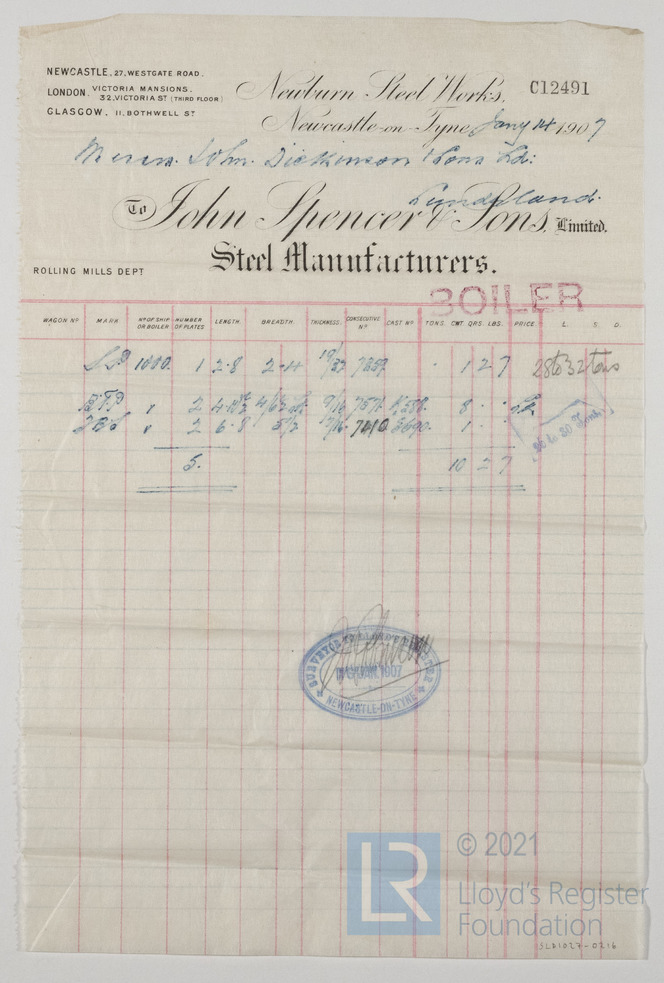 NEWCASTLE. 27, WESTGATE ROAD.
LONDON. VICTORIA MANSIONS. 32, VICTORIA ST (THIRD FLOOR)
GLASGOW. 11, BOTHWELL ST
Newburn Steel Works,
C12491
Newcastle-on-Tyne Jany 14 1907
Messrs. John. Dickinson & Sons Ld:
Sunderland.
To John Spencer & Sons, Limited.
Steel Manufacturers.
ROLLING MILLS DEPT
BOILER
WAGON No MARK No OF SHIP OR BOILER NUMBER OF PLATES LENGTH. BREADTH. THICKNESS. CONSECUTIVE No. CAST No TONS. CWT. QRS. LBS. PRICE L. S. D.
1000. 1 2-8 2-4 19/32 1 2 7 28 to 32 tons
" 2 9/16 8 " "
" 2 6-8 1 " "
26 to 30 Tons
5. 10 2 7
SURVEYOR TO LLOYD'S REGISTER
JAN. 1907
NEWCASTLE-ON-TYNE
LR
© 2021
Lloyd's Register
Foundation
SLD1027-0216